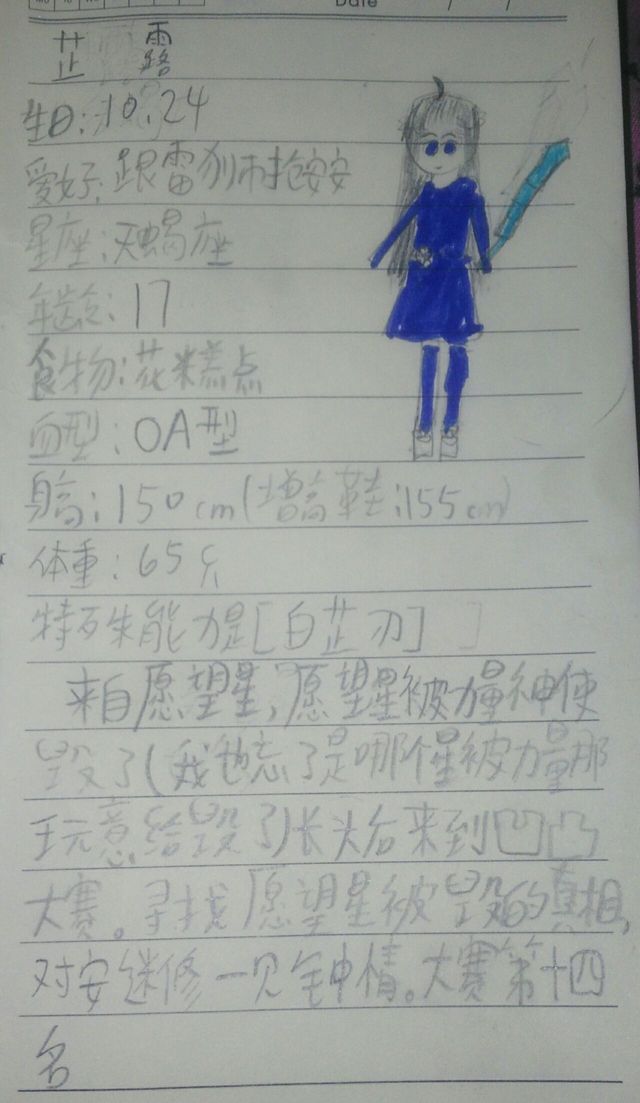 Date / /
芷露
生日:10.24
爱好:跟雷狮抢安安
星座:天蝎座
年龄:17
食物:花米糕点
血型:OA型
身高:150cm(增高鞋:155cm)
体重:65斤
特殊能力是[白芷刃]
来自愿望星,愿望星被力量神使
毁了(我也忘了是哪个星被力量那
玩意给毁了)长大后来到凹凸
大赛。寻找愿望星被毁的真相,
对安迷修一见钟情。大赛第十四
名